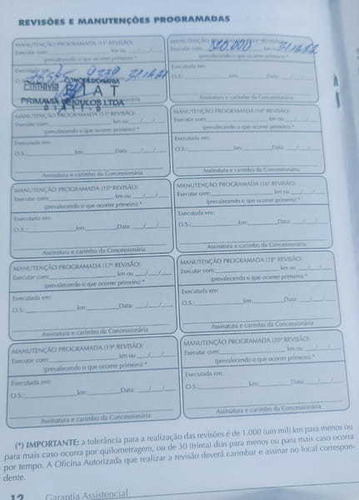 REVISÕES E MANUTENÇÕES PROGRAMADAS
MANUTENÇÃO PROGRAMADA (11ª REVISÃO)
Executar com: km ou / /
(prevalecendo o que ocorrer primeiro) *
FIAT
PRIMAVIA VEÍCULOS LTDA
Executar com: km ou
(prevalecendo o que ocorrer primeiro) *
Executada em:
O.S.: km: Data: / /
Assinatura e carimbo da Concessionária
MANUTENÇÃO PROGRAMADA (13ª REVISÃO)
Executar com: km ou / /
(prevalecendo o que ocorrer primeiro) *
Executada em:
O.S.: km: Data: / /
Assinatura e carimbo da Concessionária
MANUTENÇÃO PROGRAMADA (14ª REVISÃO)
Executar com: km ou / /
(prevalecendo o que ocorrer primeiro) *
Executada em:
O.S.: km: Data: / /
Assinatura e carimbo da Concessionária
MANUTENÇÃO PROGRAMADA (15ª REVISÃO)
Executar com: km ou / /
(prevalecendo o que ocorrer primeiro) *
Executada em:
O.S.: km: Data: / /
Assinatura e carimbo da Concessionária
MANUTENÇÃO PROGRAMADA (16ª REVISÃO)
Executar com: km ou / /
(prevalecendo o que ocorrer primeiro) *
Executada em:
O.S.: km: Data: / /
Assinatura e carimbo da Concessionária
MANUTENÇÃO PROGRAMADA (17ª REVISÃO)
Executar com: km ou / /
(prevalecendo o que ocorrer primeiro) *
Executada em:
O.S.: km: Data: / /
Assinatura e carimbo da Concessionária
MANUTENÇÃO PROGRAMADA (18ª REVISÃO)
Executar com: km ou / /
(prevalecendo o que ocorrer primeiro) *
Executada em:
O.S.: km: Data: / /
Assinatura e carimbo da Concessionária
MANUTENÇÃO PROGRAMADA (19ª REVISÃO)
Executar com: km ou / /
(prevalecendo o que ocorrer primeiro) *
Executada em:
O.S.: km: Data: / /
Assinatura e carimbo da Concessionária
MANUTENÇÃO PROGRAMADA (20ª REVISÃO)
Executar com: km ou / /
(prevalecendo o que ocorrer primeiro) *
Executada em:
O.S.: km: Data: / /
Assinatura e carimbo da Concessionária
(*) IMPORTANTE: a tolerância para a realização das revisões é de 1.000 (um mil) km para menos ou
para mais caso ocorra por quilometragem, ou de 30 (trinta) dias para menos ou para mais caso ocorra
por tempo. A Oficina Autorizada que realizar a revisão deverá carimbar e assinar no local correspon-
dente.
12 Garantia Assistencial